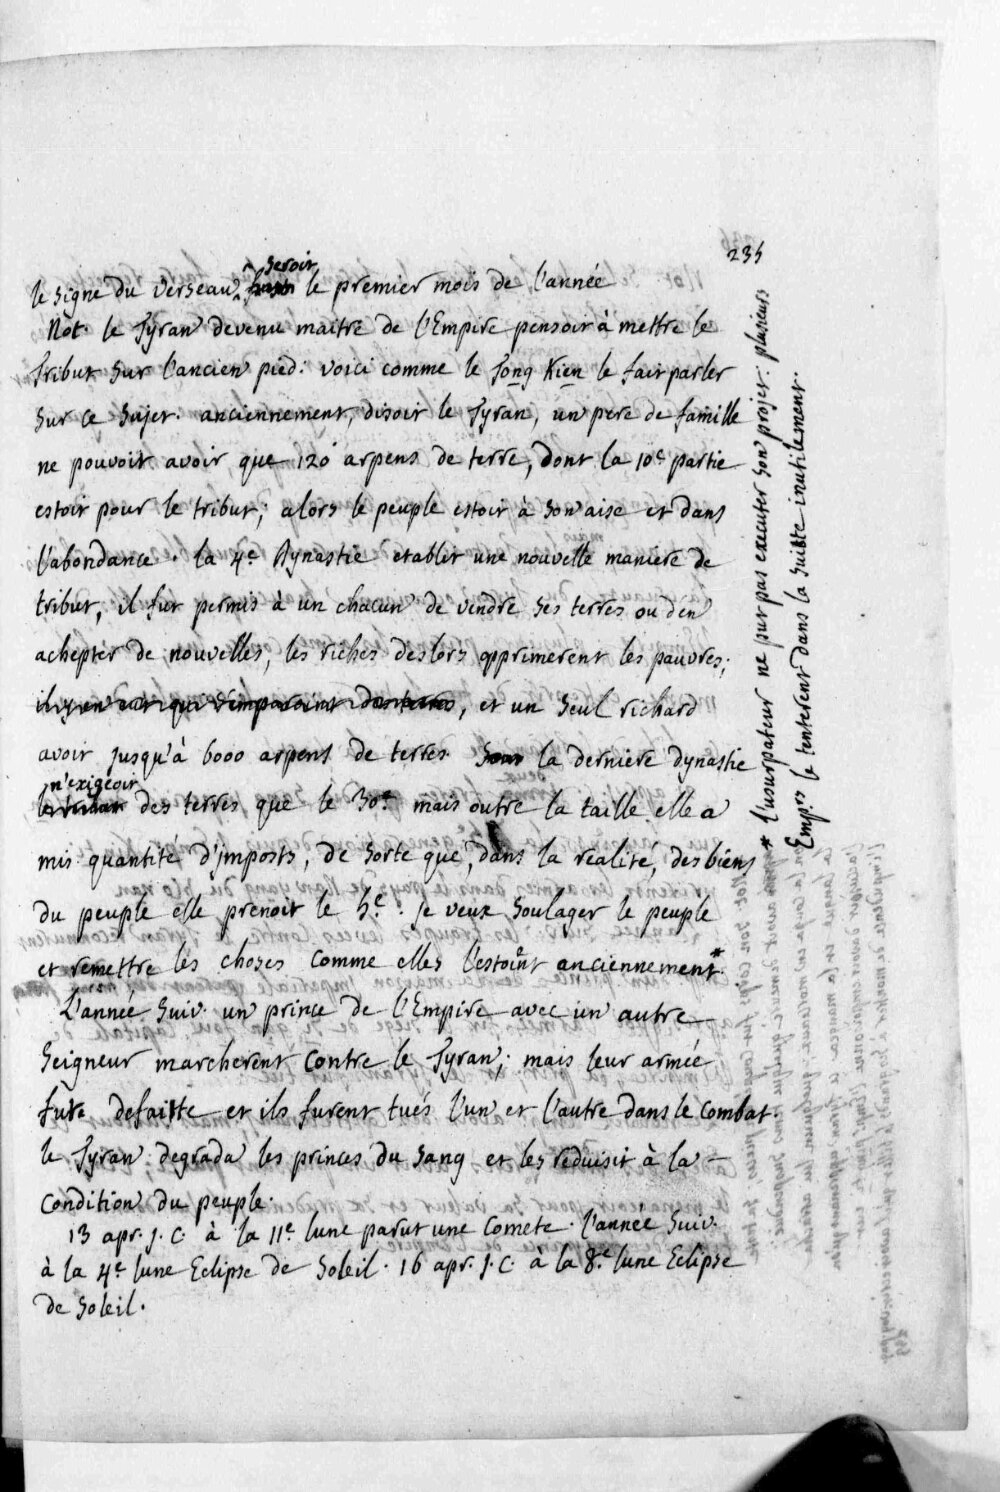 235
le signe du verseau, seroit le premier mois de l'année
Not. le Tyran devenu maitre de l'Empire pensoit à mettre le
Tribut sur l'ancien pied. voici comme le Tong Kien le fait parler
sur ce sujet. anciennement, disoit le Tyran, un pere de famille
ne pouvoit avoir que 120 arpens de terre, dont la 10e partie
estoit pour le tribut; alors le peuple estoit à son aise et dans
l'abondance. la 4e Dynastie etablit une nouvelle maniere de
tribut, il fut permis à un chacun de vendre ses terres ou d'en
achepter de nouvelles, les riches deslors opprimerent les pauvres;
il y en eut qui s'emparoient des terres, et un seul richard
avoit jusqu'à 6000 arpens de terres. Sous la derniere dynastie
n'exigeoit
le tribut des terres que le 30e mais outre la taille elle a
mis quantité d'jmposts, de sorte que, dans la realité, des biens
du peuple elle prenoit le 5e. je veux soulager le peuple
et remettre les choses comme elles l'estoint anciennement.*
L'année suiv. un prince de l'Empire avec un autre
Seigneur marcherent contre le Tyran; mais leur armée
fut defaitte et ils furent tués l'un et l'autre dans le combat
le Tyran degrada les princes du sang et les reduisit à la
condition du peuple.
13 apr. J. C. à la 11e lune parut une Comete. l'année suiv.
à la 4e lune Eclipse de Soleil. 16 apr. J. C. à la 8e lune Eclipse
de Soleil.
* l'usurpateur ne put pas executer son projet. plusieurs
Emprs le tenterent dans la suitte inutilement.